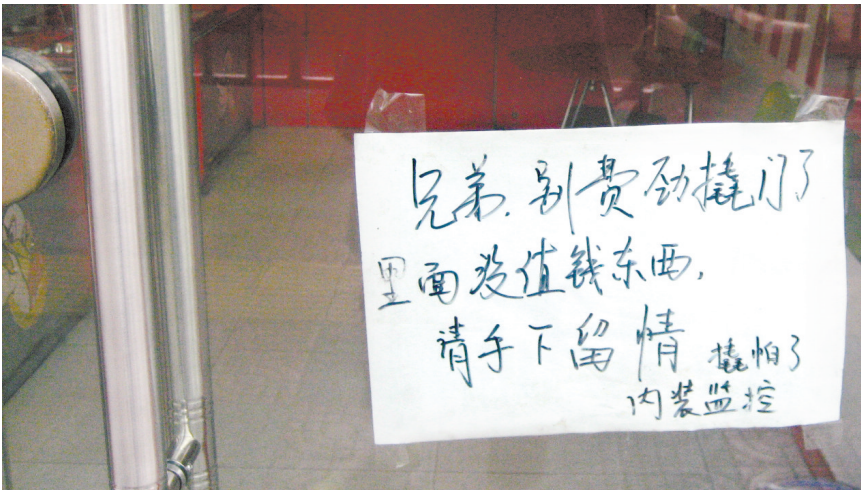 兄弟.别费劲撬门了
里面没值钱东西,
请手下留情 撬怕了
内装监控